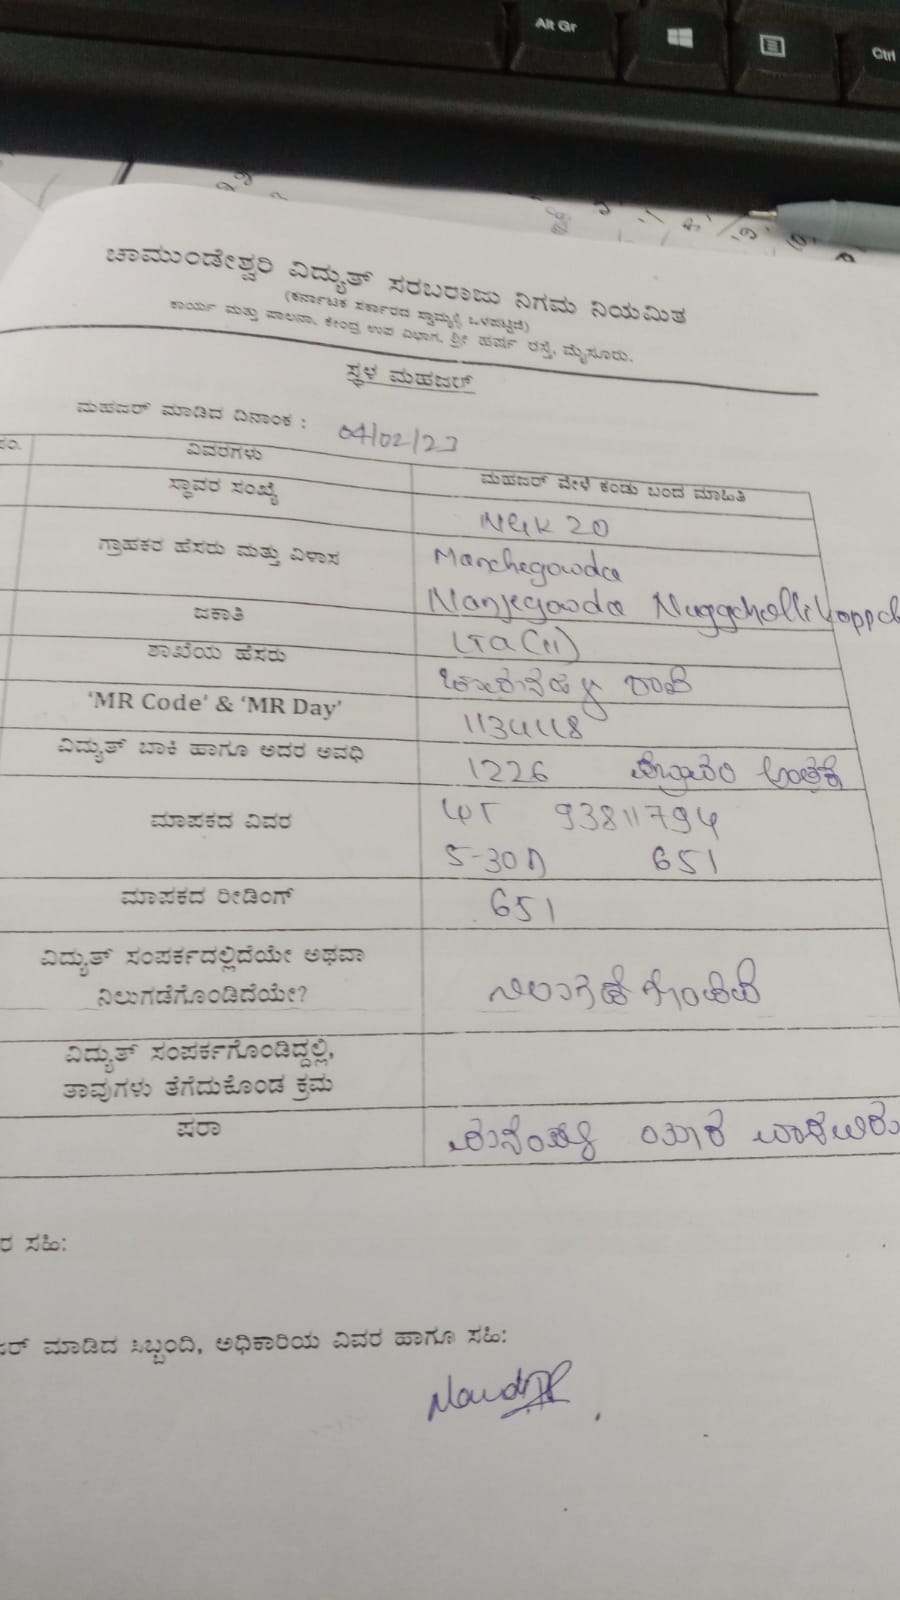 Alt Gr
Ctrl
ಚಾಮುಂಡೇಶ್ವರಿ ವಿದ್ಯುತ್ ಸರಬರಾಜು ನಿಗಮ ನಿಯಮಿತ
(ಕರ್ನಾಟಕ ಸರ್ಕಾರದ ಸ್ವಾಮ್ಯಕ್ಕೆ ಒಳಪಟ್ಟಿದೆ)
ಕಾರ್ಯ ಮತ್ತು ಪಾಲನಾ, ಕೇಂದ್ರ ಉಪ ವಿಭಾಗ, ಶ್ರೀ ಹರ್ಷ ರಸ್ತೆ, ಮೈಸೂರು.
ಸ್ಥಳ ಮಹಜರ್
ಮಹಜರ್ ಮಾಡಿದ ದಿನಾಂಕ : 04/02/23
ಸಂ. ವಿವರಗಳು ಮಹಜರ್ ವೇಳೆ ಕಂಡು ಬಂದ ಮಾಹಿತಿ
ಸ್ಥಾವರ ಸಂಖ್ಯೆ NGK 20
ಗ್ರಾಹಕರ ಹೆಸರು ಮತ್ತು ವಿಳಾಸ Manchegowda
Manjegowda
ಜಕಾತಿ
ಶಾಖೆಯ ಹೆಸರು
'MR Code' & 'MR Day' 1134118
ವಿದ್ಯುತ್ ಬಾಕಿ ಹಾಗೂ ಅದರ ಅವಧಿ 1226
ಮಾಪಕದ ವಿವರ 93811794
5-30A 651
ಮಾಪಕದ ರೀಡಿಂಗ್ 651
ವಿದ್ಯುತ್ ಸಂಪರ್ಕದಲ್ಲಿದೆಯೇ ಅಥವಾ
ನಿಲುಗಡೆಗೊಂಡಿದೆಯೇ?
ವಿದ್ಯುತ್ ಸಂಪರ್ಕಗೊಂಡಿದ್ದಲ್ಲಿ,
ತಾವುಗಳು ತೆಗೆದುಕೊಂಡ ಕ್ರಮ
ಷರಾ
ರ ಸಹಿ:
ಜರ್ ಮಾಡಿದ ಸಿಬ್ಬಂದಿ, ಅಧಿಕಾರಿಯ ವಿವರ ಹಾಗೂ ಸಹಿ: